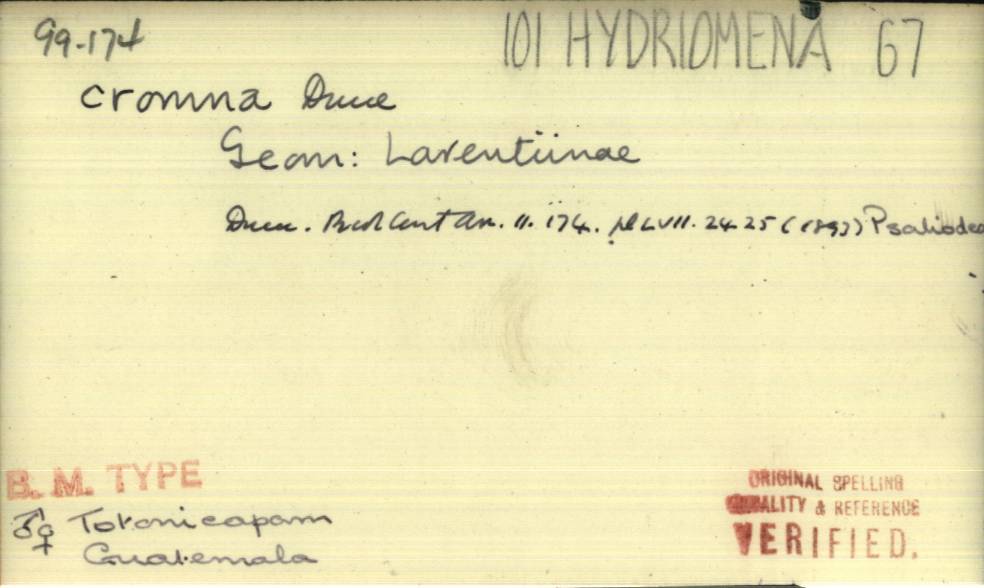 99-174 101 HYDRIOMENA 67
cromna Druce
Geom: Larentiinae
Druce. Biol Cent Am. II. 174. pl LVII. 24 25 (1893) Psaliodes
B. M. TYPE
♂♀ Totonicapam
Guatemala
ORIGINAL SPELLING
LOCALITY & REFERENCE
VERIFIED.